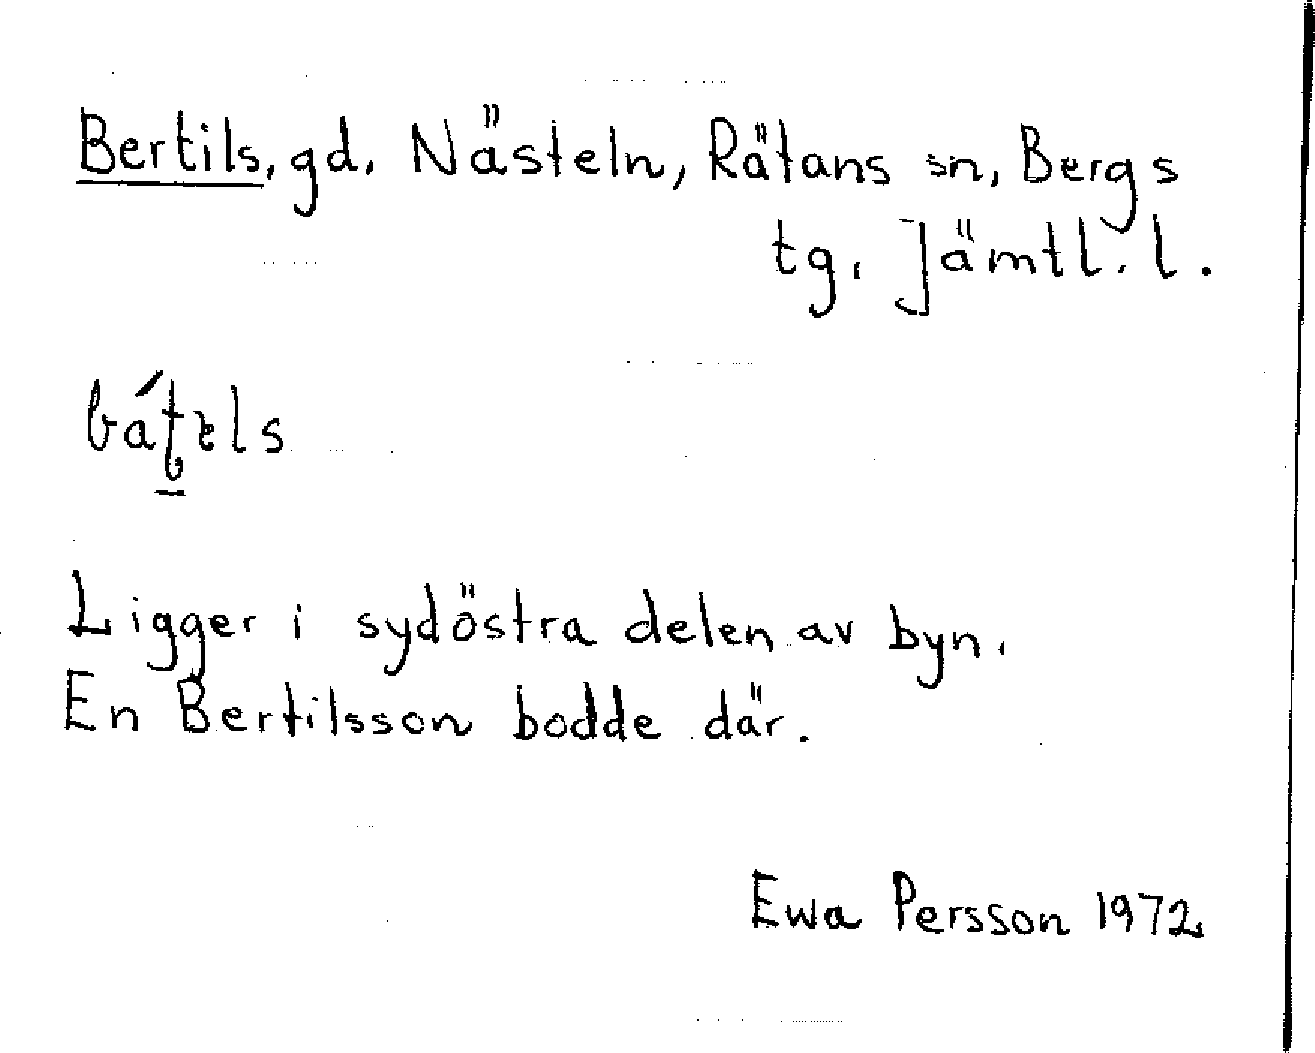 Bertils, gd. Nästeln, Rätans sn, Bergs
tg. Jämtl. l.
Ligger i sydöstra delen av byn.
En Bertilsson bodde där.
Ewa Persson 1972